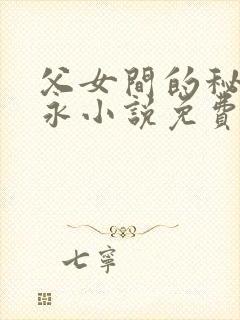 父女間的秘
永小説免費
七寧